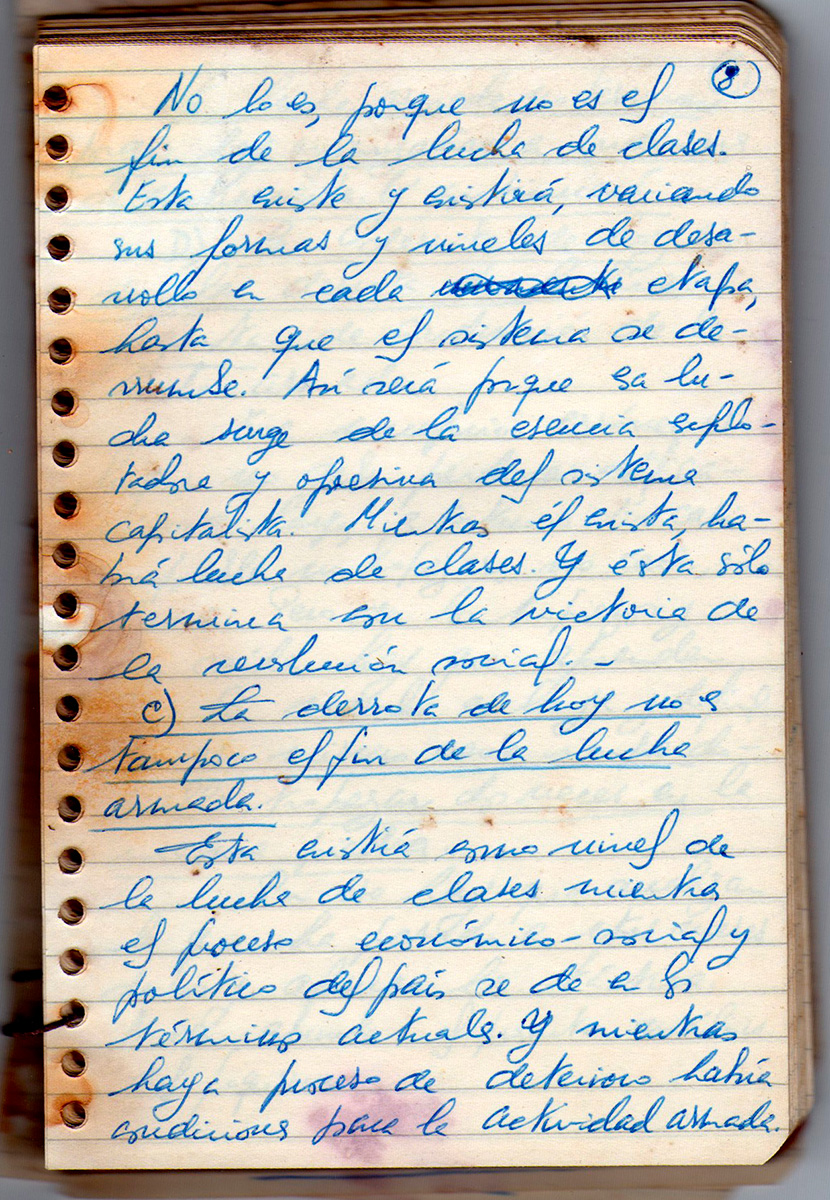 8
No lo es, porque no es el
fin de la lucha de clases.
Esta existe y existirá, variando
sus formas y niveles de desa-
rrollo en cada etapa,
hasta que el sistema se de-
rrumbe. Así será porque esa lu-
cha surge de la esencia explo-
tadora y opresiva del sistema
capitalista. Mientras él exista, ha-
brá lucha de clases. Y ésta sólo
termina con la victoria de
la revolución social. -
c) La derrota de hoy no es
tampoco el fin de la lucha
armada.
Esta existirá como nivel de
la lucha de clases mientras
el proceso económico-social y
político del país se de en los
términos actuales. Y mientras
haya proceso de deterioro habría
condiciones para la actividad armada.